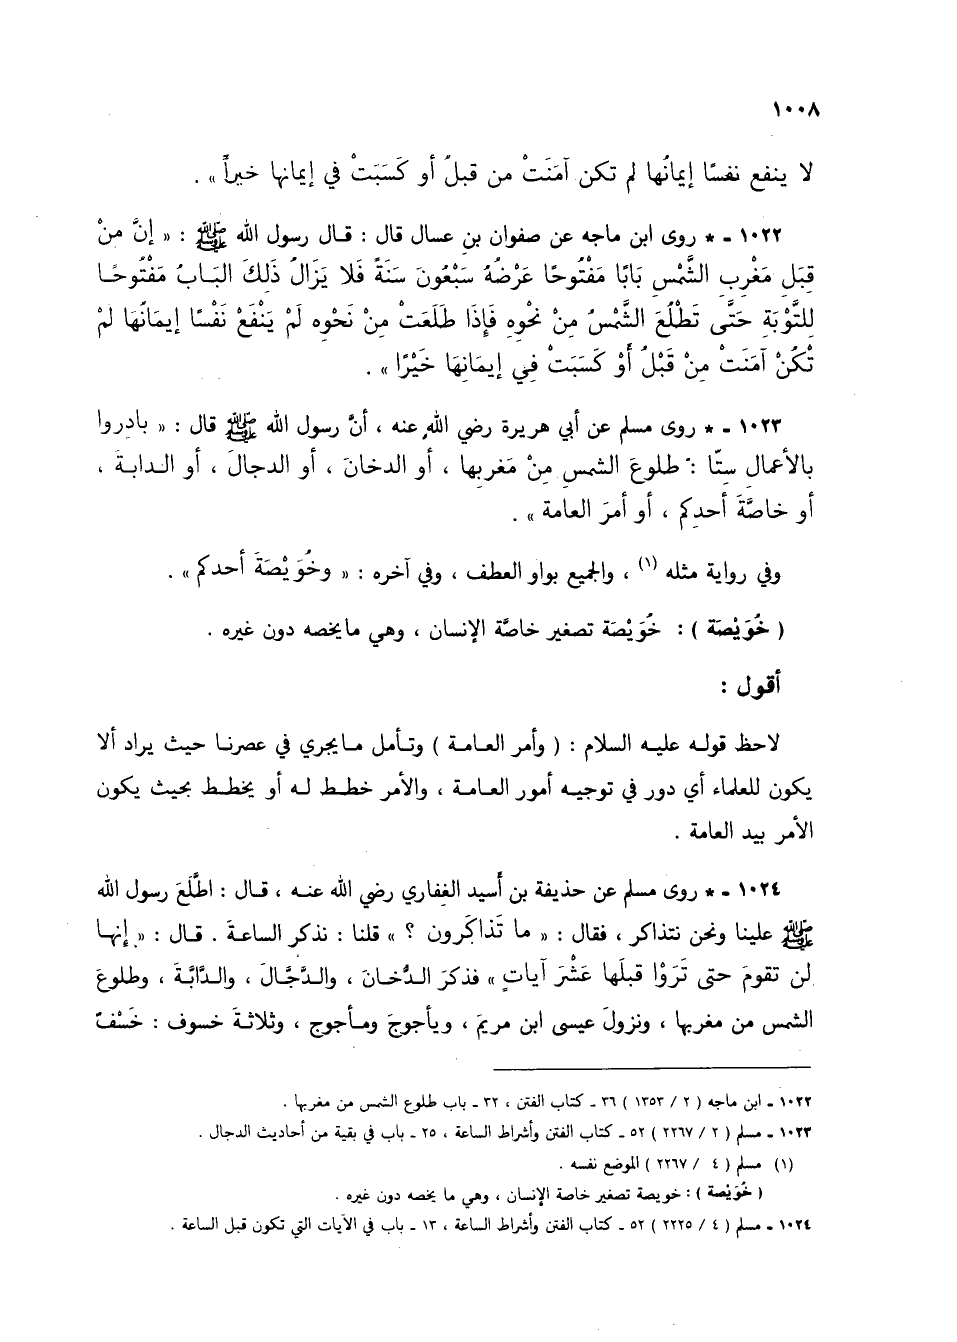 ١٠٠٨
لا ينفع نفسًا إيمانُها لم تكن آمَنَتْ من قبلُ أو كَسَبَتْ في إيمانها خيراً » .
١٠٢٢ - * روى ابن ماجه عن صفوان بن عسال قال : قال رسول الله ﷺ : « إنَّ مِنْ
قِبَلِ مَغْرِبِ الشَّمْسِ بَابًا مَفْتُوحًا عَرْضُهُ سَبْعُونَ سَنَةً فَلا يَزَالُ ذَلِكَ البَـابُ مَفْتُوحًـا
لِلتَّوْبَةِ حَتَّى تَطْلُعَ الشَّمْسُ مِنْ نَحْوِهِ فَإِذَا طَلَعَتْ مِنْ نَحْوِهِ لَمْ يَنْفَعْ نَفْسًا إيمَانُهَا لَمْ
تْكُنْ آمَنَتْ مِنْ قَبْلُ أَوْ كَسَبَتْ فِي إيمَانِهَا خَيْرًا » .
١٠٢٣ - * روى مسلم عن أبي هريرة رضي الله عنه ، أنَّ رسول الله ﷺ قال : « بادِروا
بالأعمال سِتًّا : طلوعَ الشمسِ مِنْ مَغربِها ، أو الدخانَ ، أو الدجالَ ، أو الـدابـةَ ،
أو خاصَّةَ أحدِكم ، أو أمرَ العامة » .
وفي رواية مثله (١) ، والجميع بواو العطف ، وفي آخره : « وخُوَيْصَةَ أحدكم » .
( خُوَيْصَة ) : خُوَيْصَة تصغير خاصَّة الإنسان ، وهي مايخصه دون غيره .
أقول :
لاحظ قولـه عليـه السلام : ( وأمر العـامـة ) وتـأمل مـايجري في عصرنـا حيث يراد ألا
يكون للعلماء أي دور في توجيـه أمور العـامـة ، والأمر خطـط لـه أو يخطـط بحيث يكون
الأمر بيد العامة .
١٠٢٤ - * روى مسلم عن حذيفة بن أسيد الغفاري رضي الله عنـه ، قـال : اطَّلَعَ رسول الله
ﷺ علينا ونحن نتذاكر ، فقال : « ما تَذاكَرون ؟ » قلنا : نذكر الساعـةَ . قـال : « إنهـا
لن تقومَ حتى تَرَوْا قبلَها عَشْرَ آياتٍ » فذكرَ الـدُّخـانَ ، والـدَّجَّـالَ ، والـدَّابَّـةَ ، وطلوعَ
الشمس من مغربها ، ونزولَ عيسى ابن مريمَ ، ويأجوجَ ومـأجوج ، وثلاثـةَ خسوف : خَسْفٌ
١٠٢٢ - ابن ماجه ( ٢ / ١٣٥٣ ) ٣٦ - كتاب الفتن ، ٣٢ - باب طلوع الشمس من مغربها .
١٠٢٣ - مسلم ( ٢ / ٢٢٦٧ ) ٥٢ - كتاب الفتن وأشراط الساعة ، ٢٥ - باب في بقية من أحاديث الدجال .
(١) مسلم ( ٤ / ٢٢٦٧ ) الموضع نفسه .
( خُوَيْصة ) : خويصة تصغير خاصة الإنسان ، وهي ما يخصه دون غيره .
١٠٢٤ - مسلم ( ٤ / ٢٢٢٥ ) ٥٢ - كتاب الفتن وأشراط الساعة ، ١٣ - باب في الآيات التي تكون قبل الساعة .